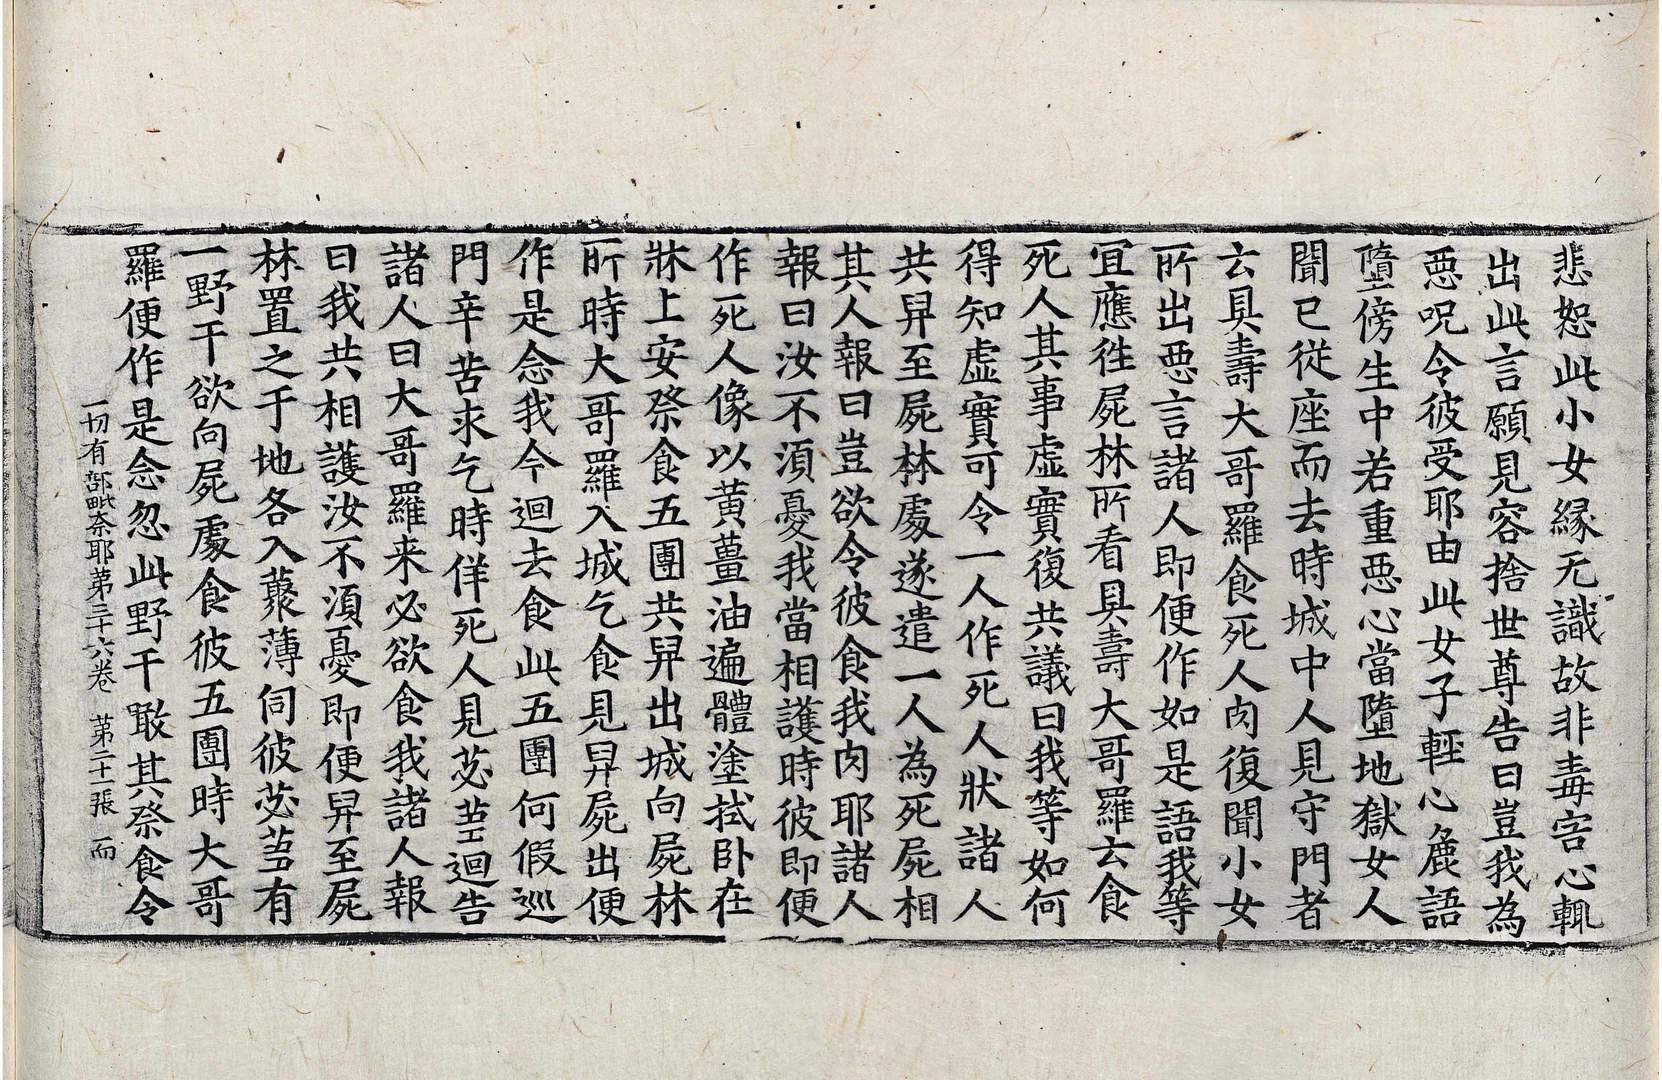 悲恕此小女緣无識故非毒害心輒
出此言願見容捨世尊告曰豈我為
惡呪令彼受耶由此女子輕心麁語
墮傍生中若重惡心當墮地獄女人
聞已從座而去時城中人見守門者
云具壽大哥羅食死人肉復聞小女
所出惡言諸人即便作如是語我等
宜應徃屍林所看具壽大哥羅云食
死人其事虛實復共議曰我等如何
得知虛實可令一人作死人狀諸人
共舁至屍林處遂遣一人為死屍相
其人報曰豈欲令彼食我肉耶諸人
報曰汝不湏憂我當相護時彼即便
作死人像以黃薑油遍體塗拭卧在
牀上安祭食五團共舁出城向屍林
所時大哥羅入城乞食見舁屍出便
作是念我今迴去食此五團何假巡
門辛苦求乞時佯死人見苾芻迴告
諸人曰大哥羅来必欲食我諸人報
曰我共相護汝不湏憂即便舁至屍
林置之于地各入藂薄伺彼苾芻有
一野干欲向屍處食彼五團時大哥
羅便作是念忽此野干敢其祭食令
一切有部毗奈耶第三十六卷 第二十張 而